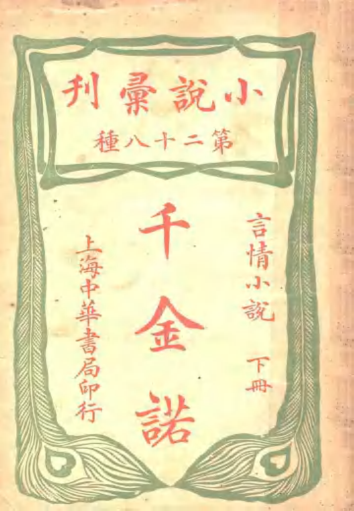 小說彙刊
第二十八種
言情小說 下冊
千金諾
上海中華書局印行